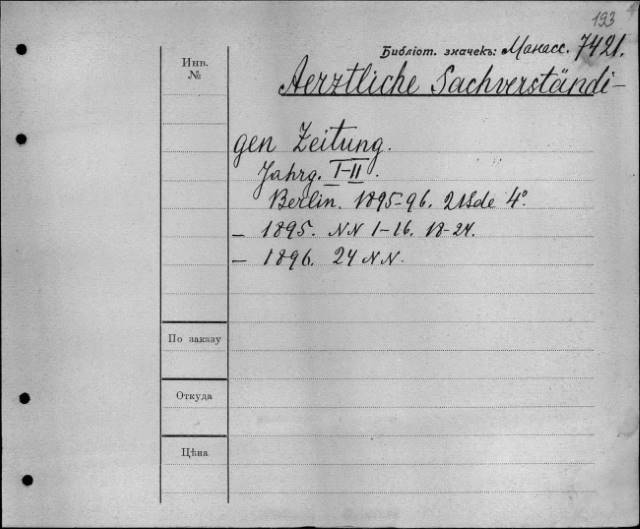 193
Библіот. значекъ: Манасс. 7421.
Инв.
№
Aerztliche Sachverständi-
gen Zeitung.
Jahrg. I-II.
Berlin. 1895-96. 2 Bde 4°.
— 1895. NN 1-16. 18-24.
— 1896. 24 NN.
По заказу
Откуда
Цѣна